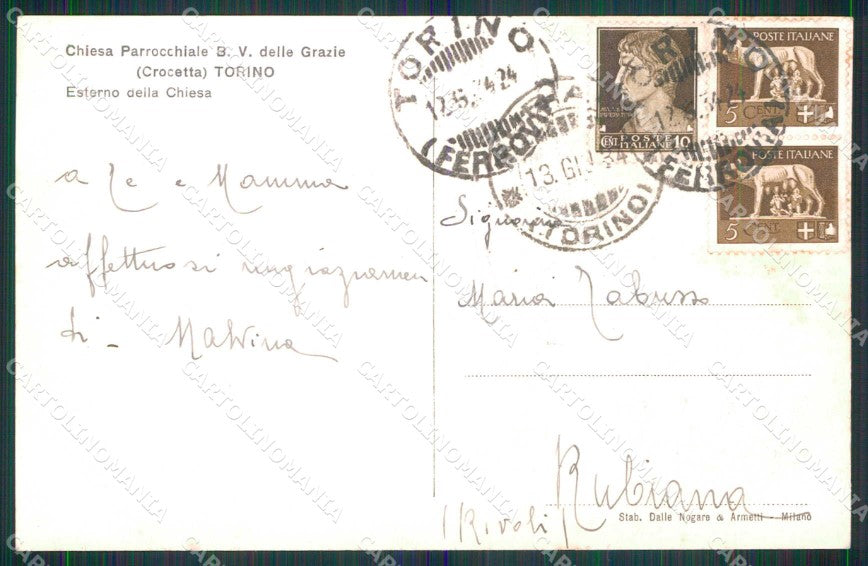 Chiesa Parrocchiale B. V. delle Grazie
(Crocetta) TORINO
Esterno della Chiesa
a Te e Mamma
affettuosi ringraziamen
ti - Malvina
TORINO
(FERROVIA)
13. GIU 34
(TORINO)
POSTE ITALIANE
CENT 10
POSTE ITALIANE
5 CENT
POSTE ITALIANE
5 CENT
TORINO
(FERROVIA)
Signorina
Maria
Rubiana
(Rivoli)
Stab. Dalle Nogare & Armetti - Milano
CARTOLINOMANIA